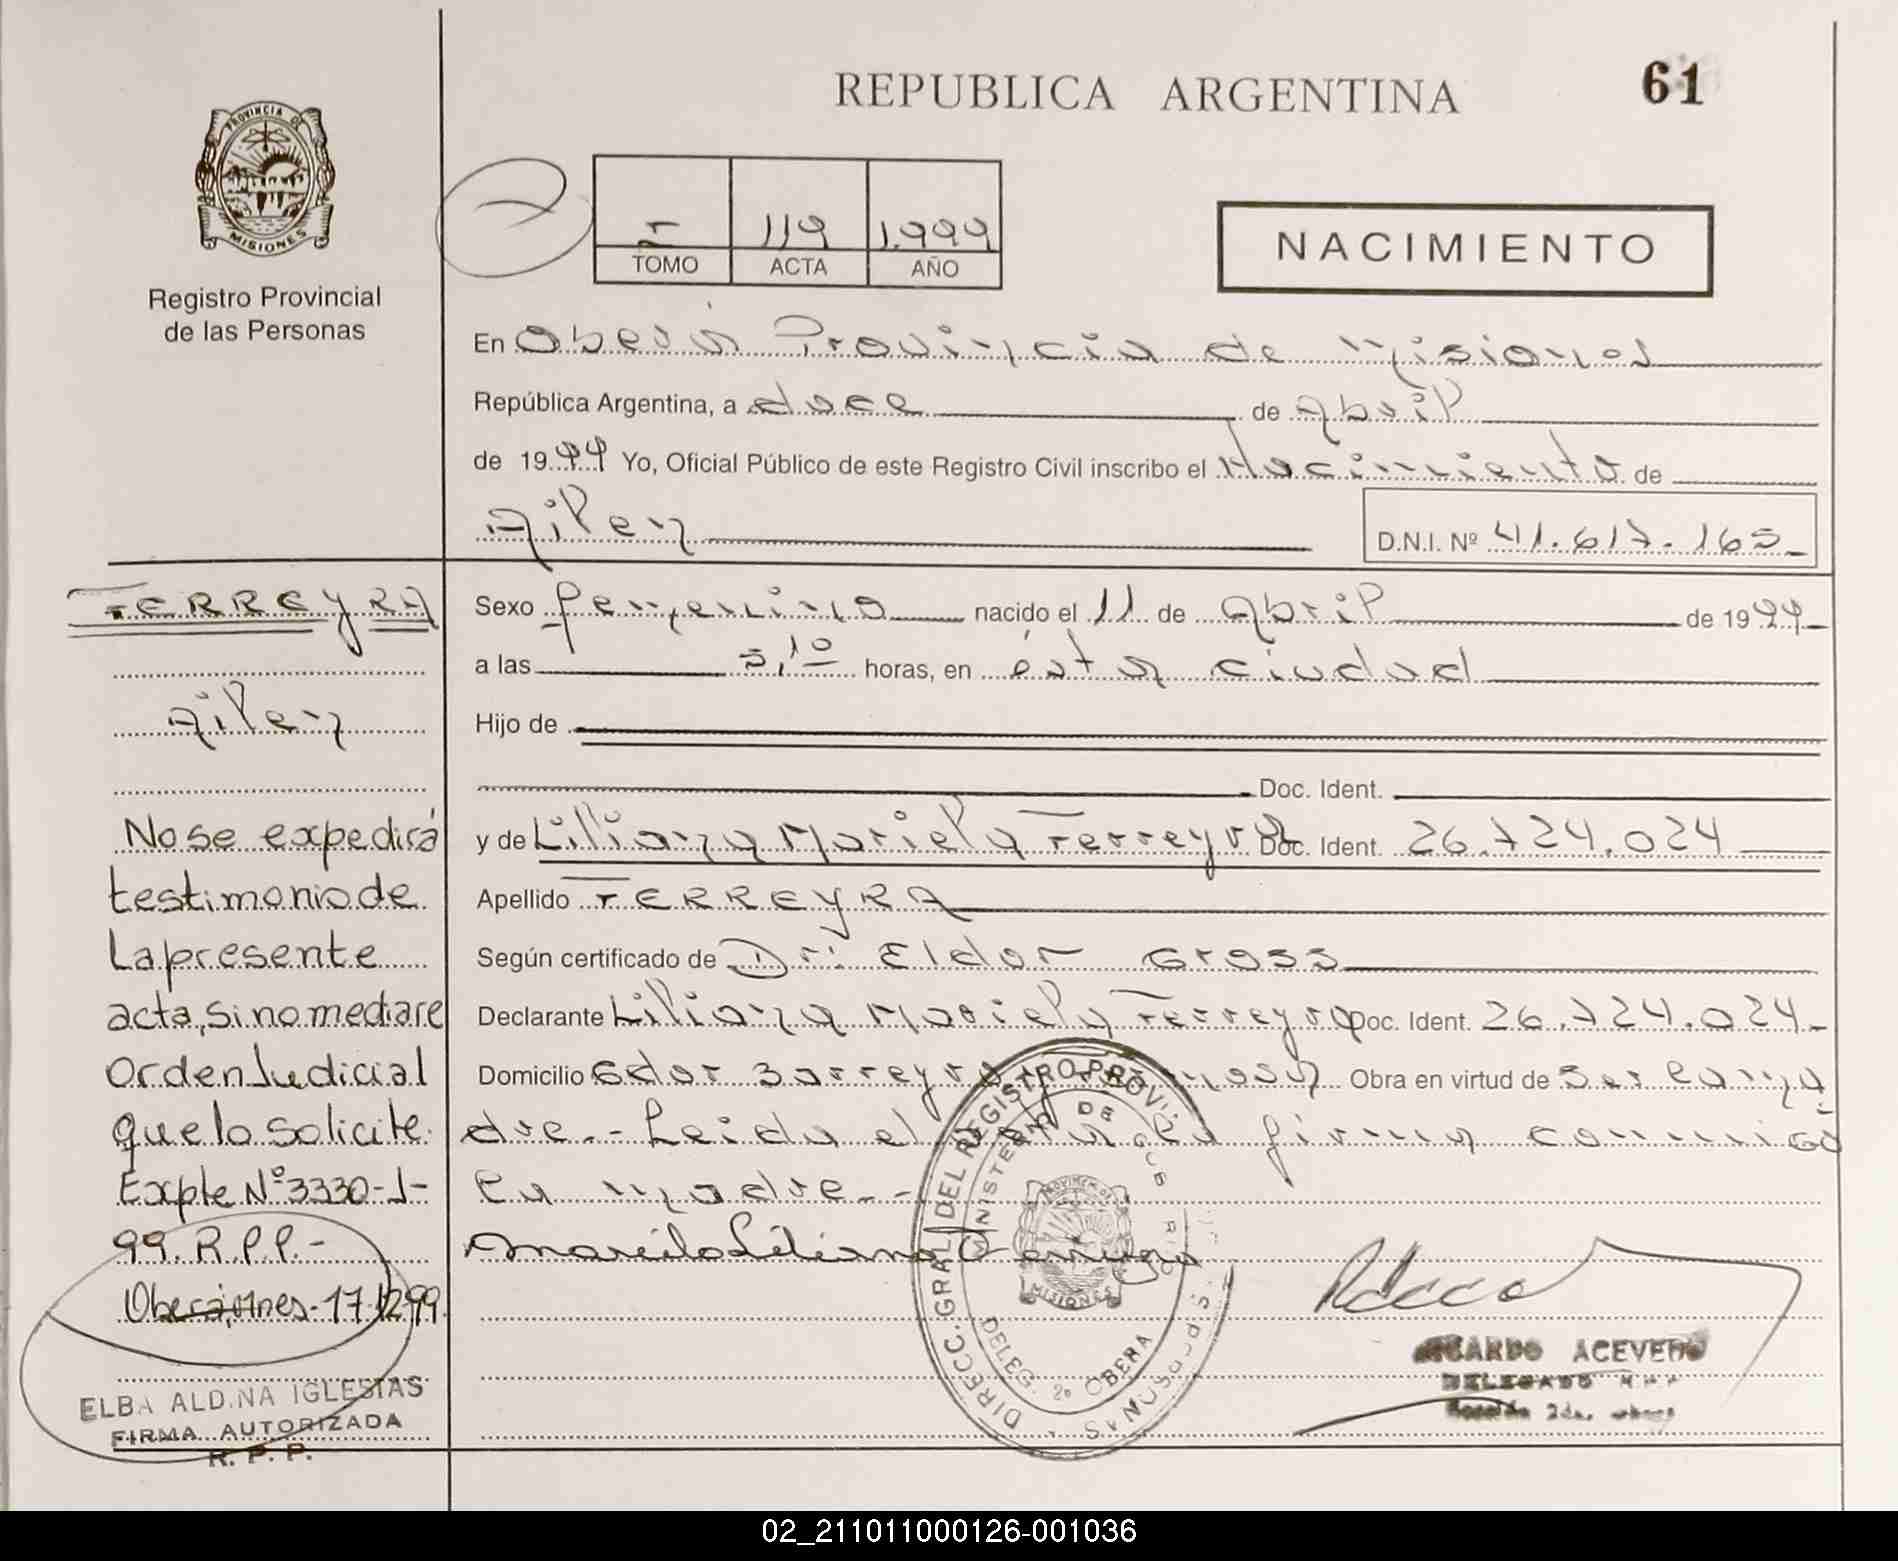 REPUBLICA ARGENTINA
61
PROVINCIA DE
MISIONES
Registro Provincial
de las Personas
I 119 1.999
TOMO ACTA AÑO
NACIMIENTO
En Oberá Provincia de Misiones
República Argentina, a doce de Abril
de 1999 Yo, Oficial Público de este Registro Civil inscribo el Nacimiento de
Ailen
D.N.I. Nº 41.617.165
FERREYRA
Ailen
No se expedirá
testimonio de
la presente
acta, si no mediare
Orden Judicial
que lo solicite.
Expte Nº 3330-J-
99. R.P.P.-
Oberá, Mnes. 17.12.99.
ELBA ALDINA IGLESIAS
FIRMA AUTORIZADA
R. P. P.
Sexo femenino nacido el 11 de Abril de 1999
a las 5,10 horas, en ésta ciudad
Hijo de
Doc. Ident.
y de Liliana Mariela Ferreyra Doc. Ident. 26.724.024
Apellido FERREYRA
Según certificado de Dr: Eldor Gross
Declarante Liliana Mariela Ferreyra Doc. Ident. 26.724.024-
Domicilio Obra en virtud de ser la ma
dre.- Leida el acta la firma conmigo
la madre.-
Mariela Liliana Ferreyra
DIRECC. GRAL. DEL REGISTRO PROV. DE LAS PERSONAS
MINISTERIO DE GOBIERNO
PROVINCIA DE
MISIONES
DELEG. 2º OBERA
RICARDO ACEVEDO
DELEGADO R.P.P.
Sección 2da. Oberá
02_211011000126-001036